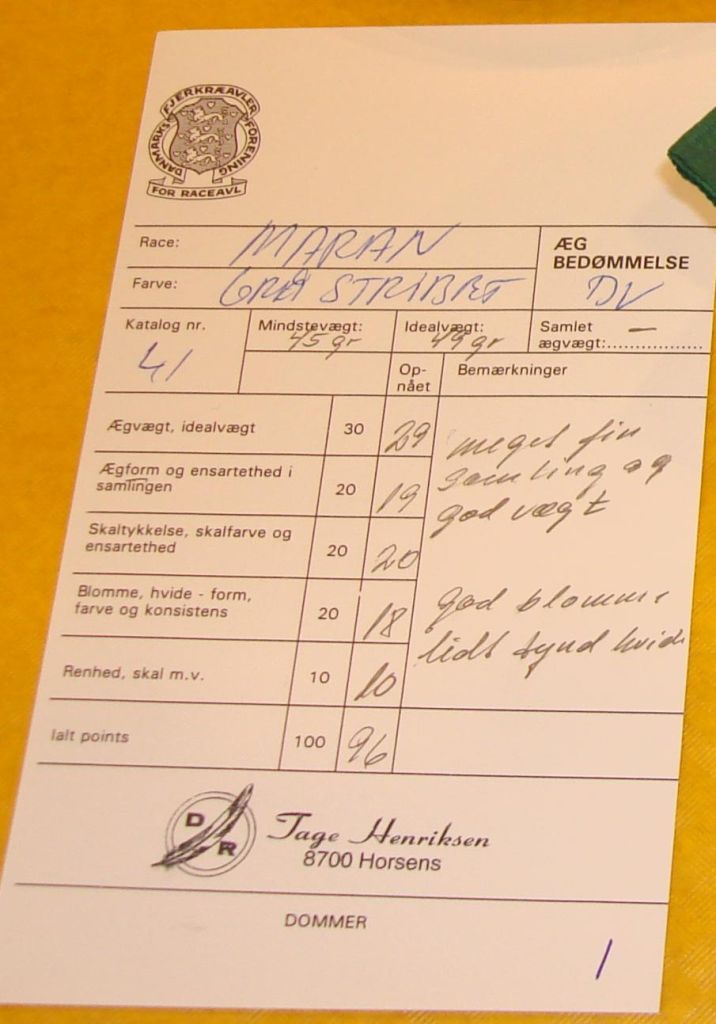 DANMARKS FJERKRÆAVLER FORENING
FOR RACEAVL
Race: MARAN
Farve: GRÅ STRIBET
ÆG
BEDØMMELSE
DV
Katalog nr.
41
Mindstevægt:
45 gr
Idealvægt:
49 gr
Samlet
ægvægt:.................. —
Op-
nået
Bemærkninger
Ægvægt, idealvægt 30 29
Ægform og ensartethed i
samlingen 20 19
Skaltykkelse, skalfarve og
ensartethed 20 20
Blomme, hvide - form,
farve og konsistens 20 18
Renhed, skal m.v. 10 10
Ialt points 100 96
meget fin
samling og
god vægt
god blomme
lidt tynd hvide
D R
Tage Henriksen
8700 Horsens
DOMMER
1